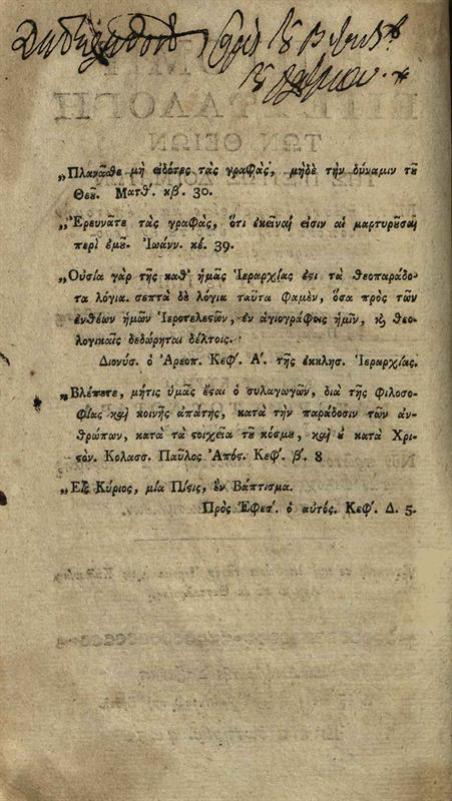 „Πλανᾶσθε μὴ εἰδότες τὰς γραφὰς, μηδὲ τὴν δύναμιν τȣ͂
Θεȣ͂. Ματθ'. κβ'. 30.
„Ἐρευνᾶτε τὰς γραφὰς, ὅτι ἐκεῖναί εἰσιν αἱ μαρτυρȣ͂σαι
περὶ ἐμȣ͂. Ἰωάνν. κέ. 39.
„Οὐσία γὰρ τῆς καθ' ἡμᾶς Ἱεραρχίας ἐςὶ τὰ θεοπαράδο-
τα λόγια. σεπτὰ δὲ λόγια ταῦτα φαμὲν, ὅσα πρὸς τῶν
ἐνθέων ἡμῶν Ἱεροτελεςῶν, ἐν ἁγιογράφοις ἡμῖν, ϗ θεο-
λογικαῖς δεδώρηται δέλτοις.
Διονύσ. ὁ Ἀρεοπ. Κεφ'. Α'. τῆς ἐκκλησ. Ἱεραρχίας.
„Βλέπετε, μήτις ὑμᾶς ἔςαι ὁ συλαγωγῶν, διὰ τῆς φιλοσο-
φίας καὶ κοινῆς ἀπάτης, κατὰ τὴν παράδοσιν τῶν ἀν-
θρώπων, κατὰ τὰ ςοιχεῖα τȣ͂ κόσμȣ, καὶ ȣ̓ κατὰ Χρι-
ςόν. Κολασσ. Παῦλος Ἀπός. Κεφ'. β'. 8
„Εἷς Κύριος, μία Πίςις, ἓν Βάπτισμα.
Πρὸς Ἐφεσ'. ὁ αὐτός. Κεφ'. Δ. 5.